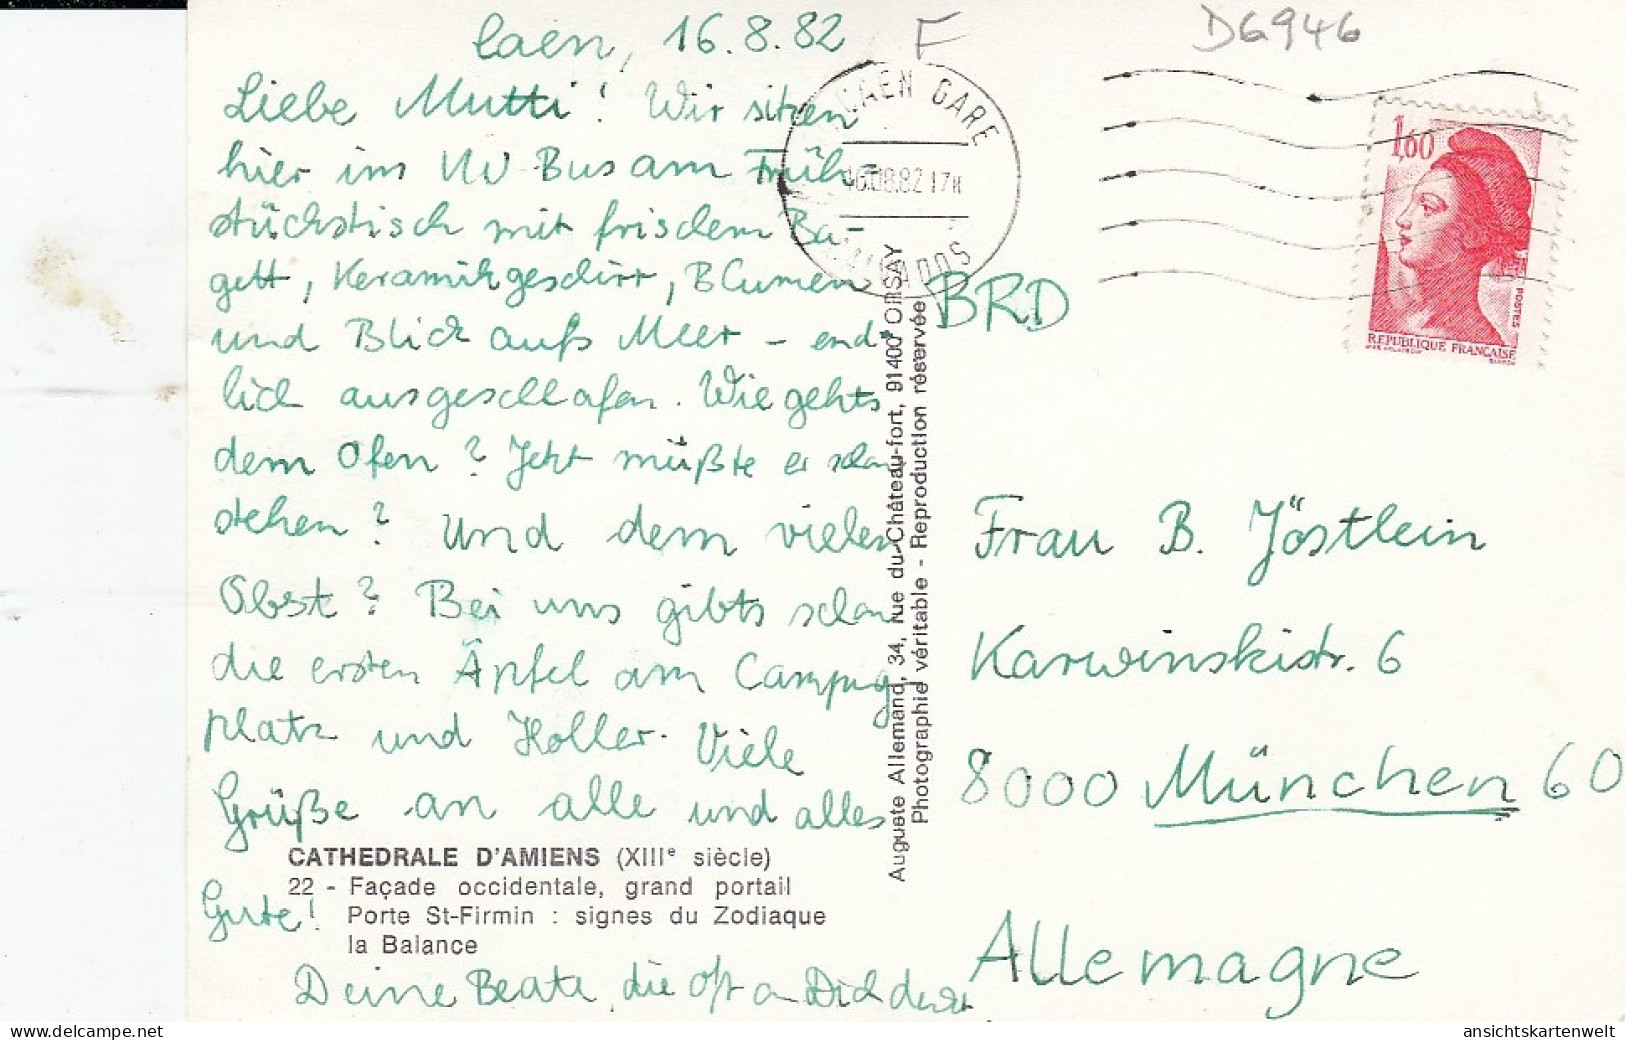 Caen, 16.8.82
F
D6946
Liebe Mutti! Wir sitzen
hier im VW-Bus am Früh-
stückstisch mit frischem Ba-
gett, Keramikgeschirr, Blumen
und Blick aufs Meer - end-
lich ausgeschlafen. Wie gehts
dem Ofen? Jetzt müßte er schon
stehen? Und dem vielen
Obst? Bei uns gibts schon
die ersten Äpfel am Camping-
platz und Holler. Viele
Grüße an alle und alles
Gute!
Deine Beate, die oft an Dich denkt
CATHEDRALE D'AMIENS (XIIIe siècle)
22 - Façade occidentale, grand portail
Porte St-Firmin : signes du Zodiaque
la Balance
Auguste Allemand, 34, rue du Château-fort, 91400 ORSAY
Photographie véritable - Reproduction réservée
CAEN GARE
16.08.82 17H
CALVADOS
1,60
POSTES
REPUBLIQUE FRANÇAISE
BRD
Frau B. Jöstlein
Karwinskistr. 6
8000 München 60
Allemagne
ansichtskartenwelt
www.delcampe.net